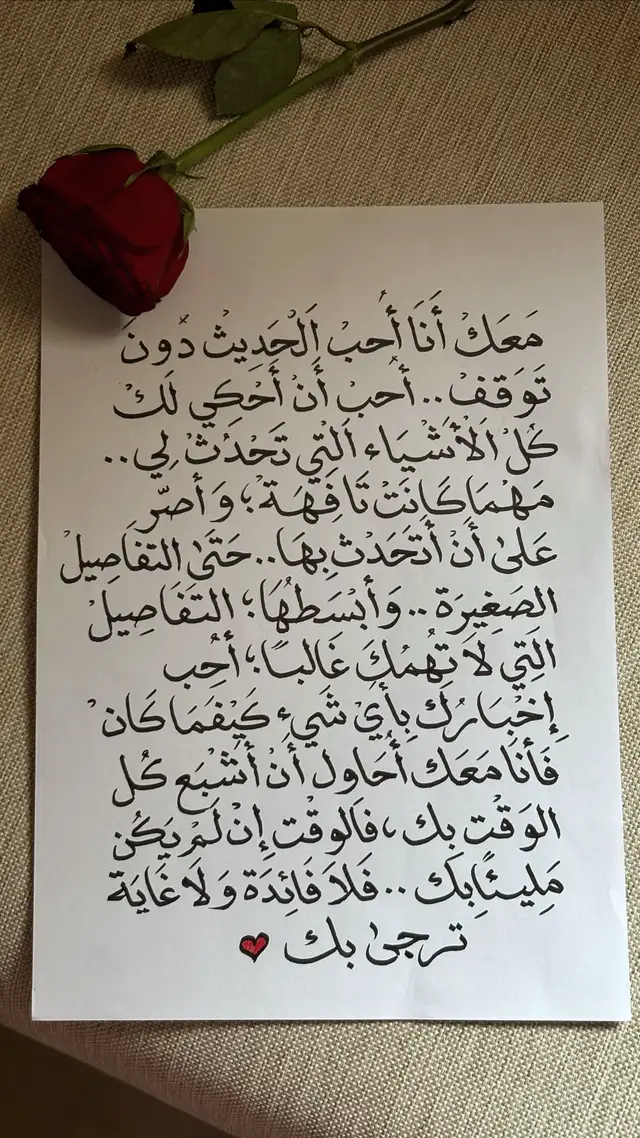 مَعَكْ أَنَا أُحبْ اَلْحَدِيثْ دُونَ
تَوَقفْ.. أُحبْ أَنْ أَحْكِي لَكْ
كُلْ اَلْأَشْيَاء اَلْتِي تَحْدُثْ لِي..
مَهْمَا كَانَتْ تَافِهَة؛ وَأصرّ
عَلىٰ أَنْ أَتَحَدَثْ بِهَا.. حَتَىٰ التفَاصِيلْ
الصَغِيرَة.. وَأَبْسَطهَا؛ التَفَاصِيلْ
الَتِي لاَ تُهمُكَ غَالبًا؛ أُحِب
إِخْبَارُكَ بِأَيْ شَيءٍ كَيْفَمَا كَانْ
فَأَنَا مَعَك أُحَاول أَنْ أَشْبَع كُل
الوَقْت بك، فَالوقْت إِنْ لَمْ يَكُن
مَلِيئًا بِكَ.. فَلاَ فَائِدَة وَلاَ غَايَة
ترجىٰ بك